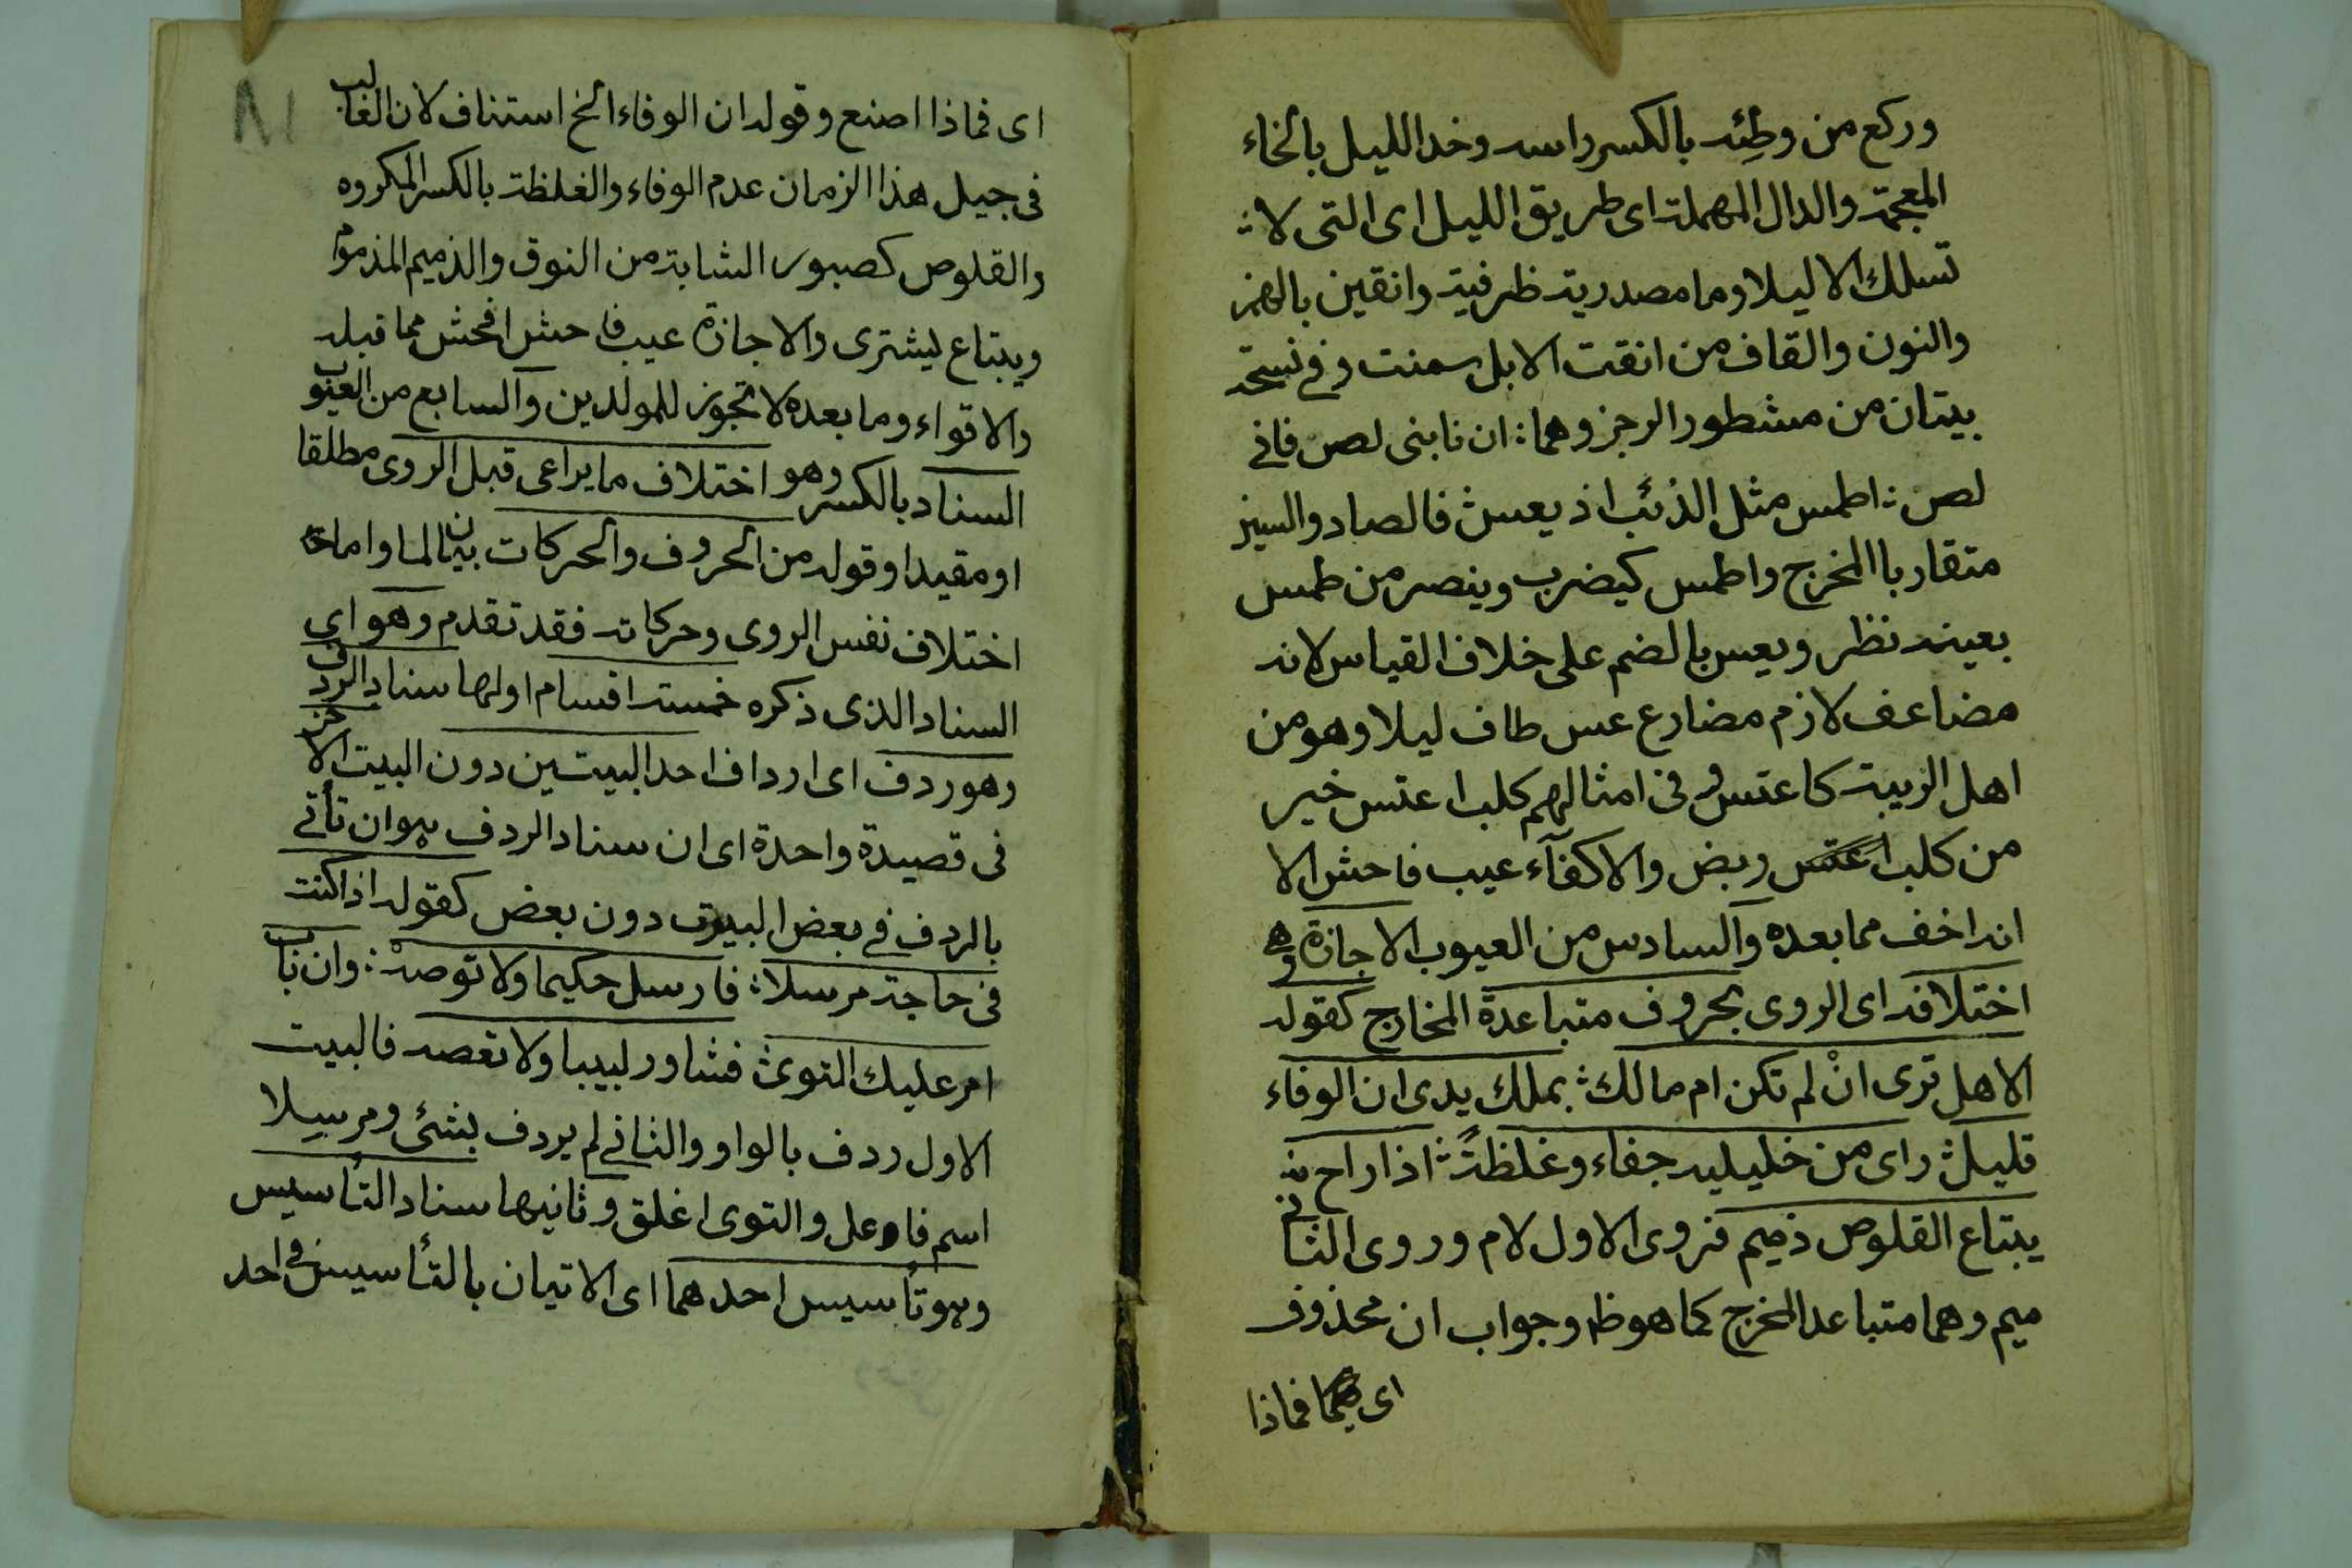 وركع من وطِئه بالكسر راسه وخد الليل بالخاء
المعجمة والدال المهملة اى طريق الليل اى التى لا
تسلك الا ليلا وما مصدرية ظرفية وانقين بالهمز
والنون والقاف من انقت الابل سمنت وفي نسخة
بيتان من مشطور الرجز وهما : ان نابنى لصن فاني
لصن : اطمس مثل الذئب اذ يعس فالصاد والسين
متقاربا المخرج واطمس كيضرب وينصر من طمس
بعينه نظر ويعس بالضم على خلاف القياس لانه
مضاعف لازم مضارع عس طاف ليلا وهو من
اهل الريبة كاعتس وفى امثالهم كلب اعتس خير
من كلب ربض والاكفآء عيب فاحش الا
انه اخف مما بعده والسادس من العيوب الاجازة وهى
اختلافه اى الروى بحروف متباعدة المخارج كقوله
الا هل ترى انْ لم تكن ام مالك : بملك يدى ان الوفاء
قليل : راى من خليليه جفاء وغلظةً : اذا راح منه
يبتاع القلوص ذميم فروى الاول لام وروى الثاني
ميم وهما متباعدا المخرج كما هو ظ وجواب ان محذوف
اى فماذا
٨١
اى فماذا اصنع وقوله ان الوفاء الخ استناف لان الغالب
فى جيل هذا الزمان عدم الوفاء والغلظة بالكسر المكروه
والقلوص كصبور الشابة من النوق والذميم المذموم
ويبتاع ليشترى والاجازة عيب فاحش افحش مما قبله
والاقواء وما بعده لا تجوز للمولدين والسابع من العيوب
السناد بالكسر وهو اختلاف ما يراعى قبل الروى مطلقا
او مقيدا وقوله من الحروف والحركات بيان لما واما
اختلاف نفس الروى وحركاته فقد تقدم وهو اى
السناد الذى ذكره خمسة اقسام اولها سناد الردف
وهو ردف اى ارداف احد البيتين دون البيت الاخر
فى قصيدة واحدة اى ان سناد الردف هو ان تأتي
بالردف في بعض البيوت دون بعض كقوله اذا كنت
فى حاجة مرسلا : فارسل حكيما ولا توصهْ : وان باب
امر عليك التوى : فشاور لبيبا ولا تعصه فالبيت
الاول ردف بالواو والثاني لم يردف بشئ ومرسِلا
اسم فاعل والتوى اغلق وثانيها سناد التأسيس
وهو تأسيس احدهما اى الاتيان بالتأسيس في احد